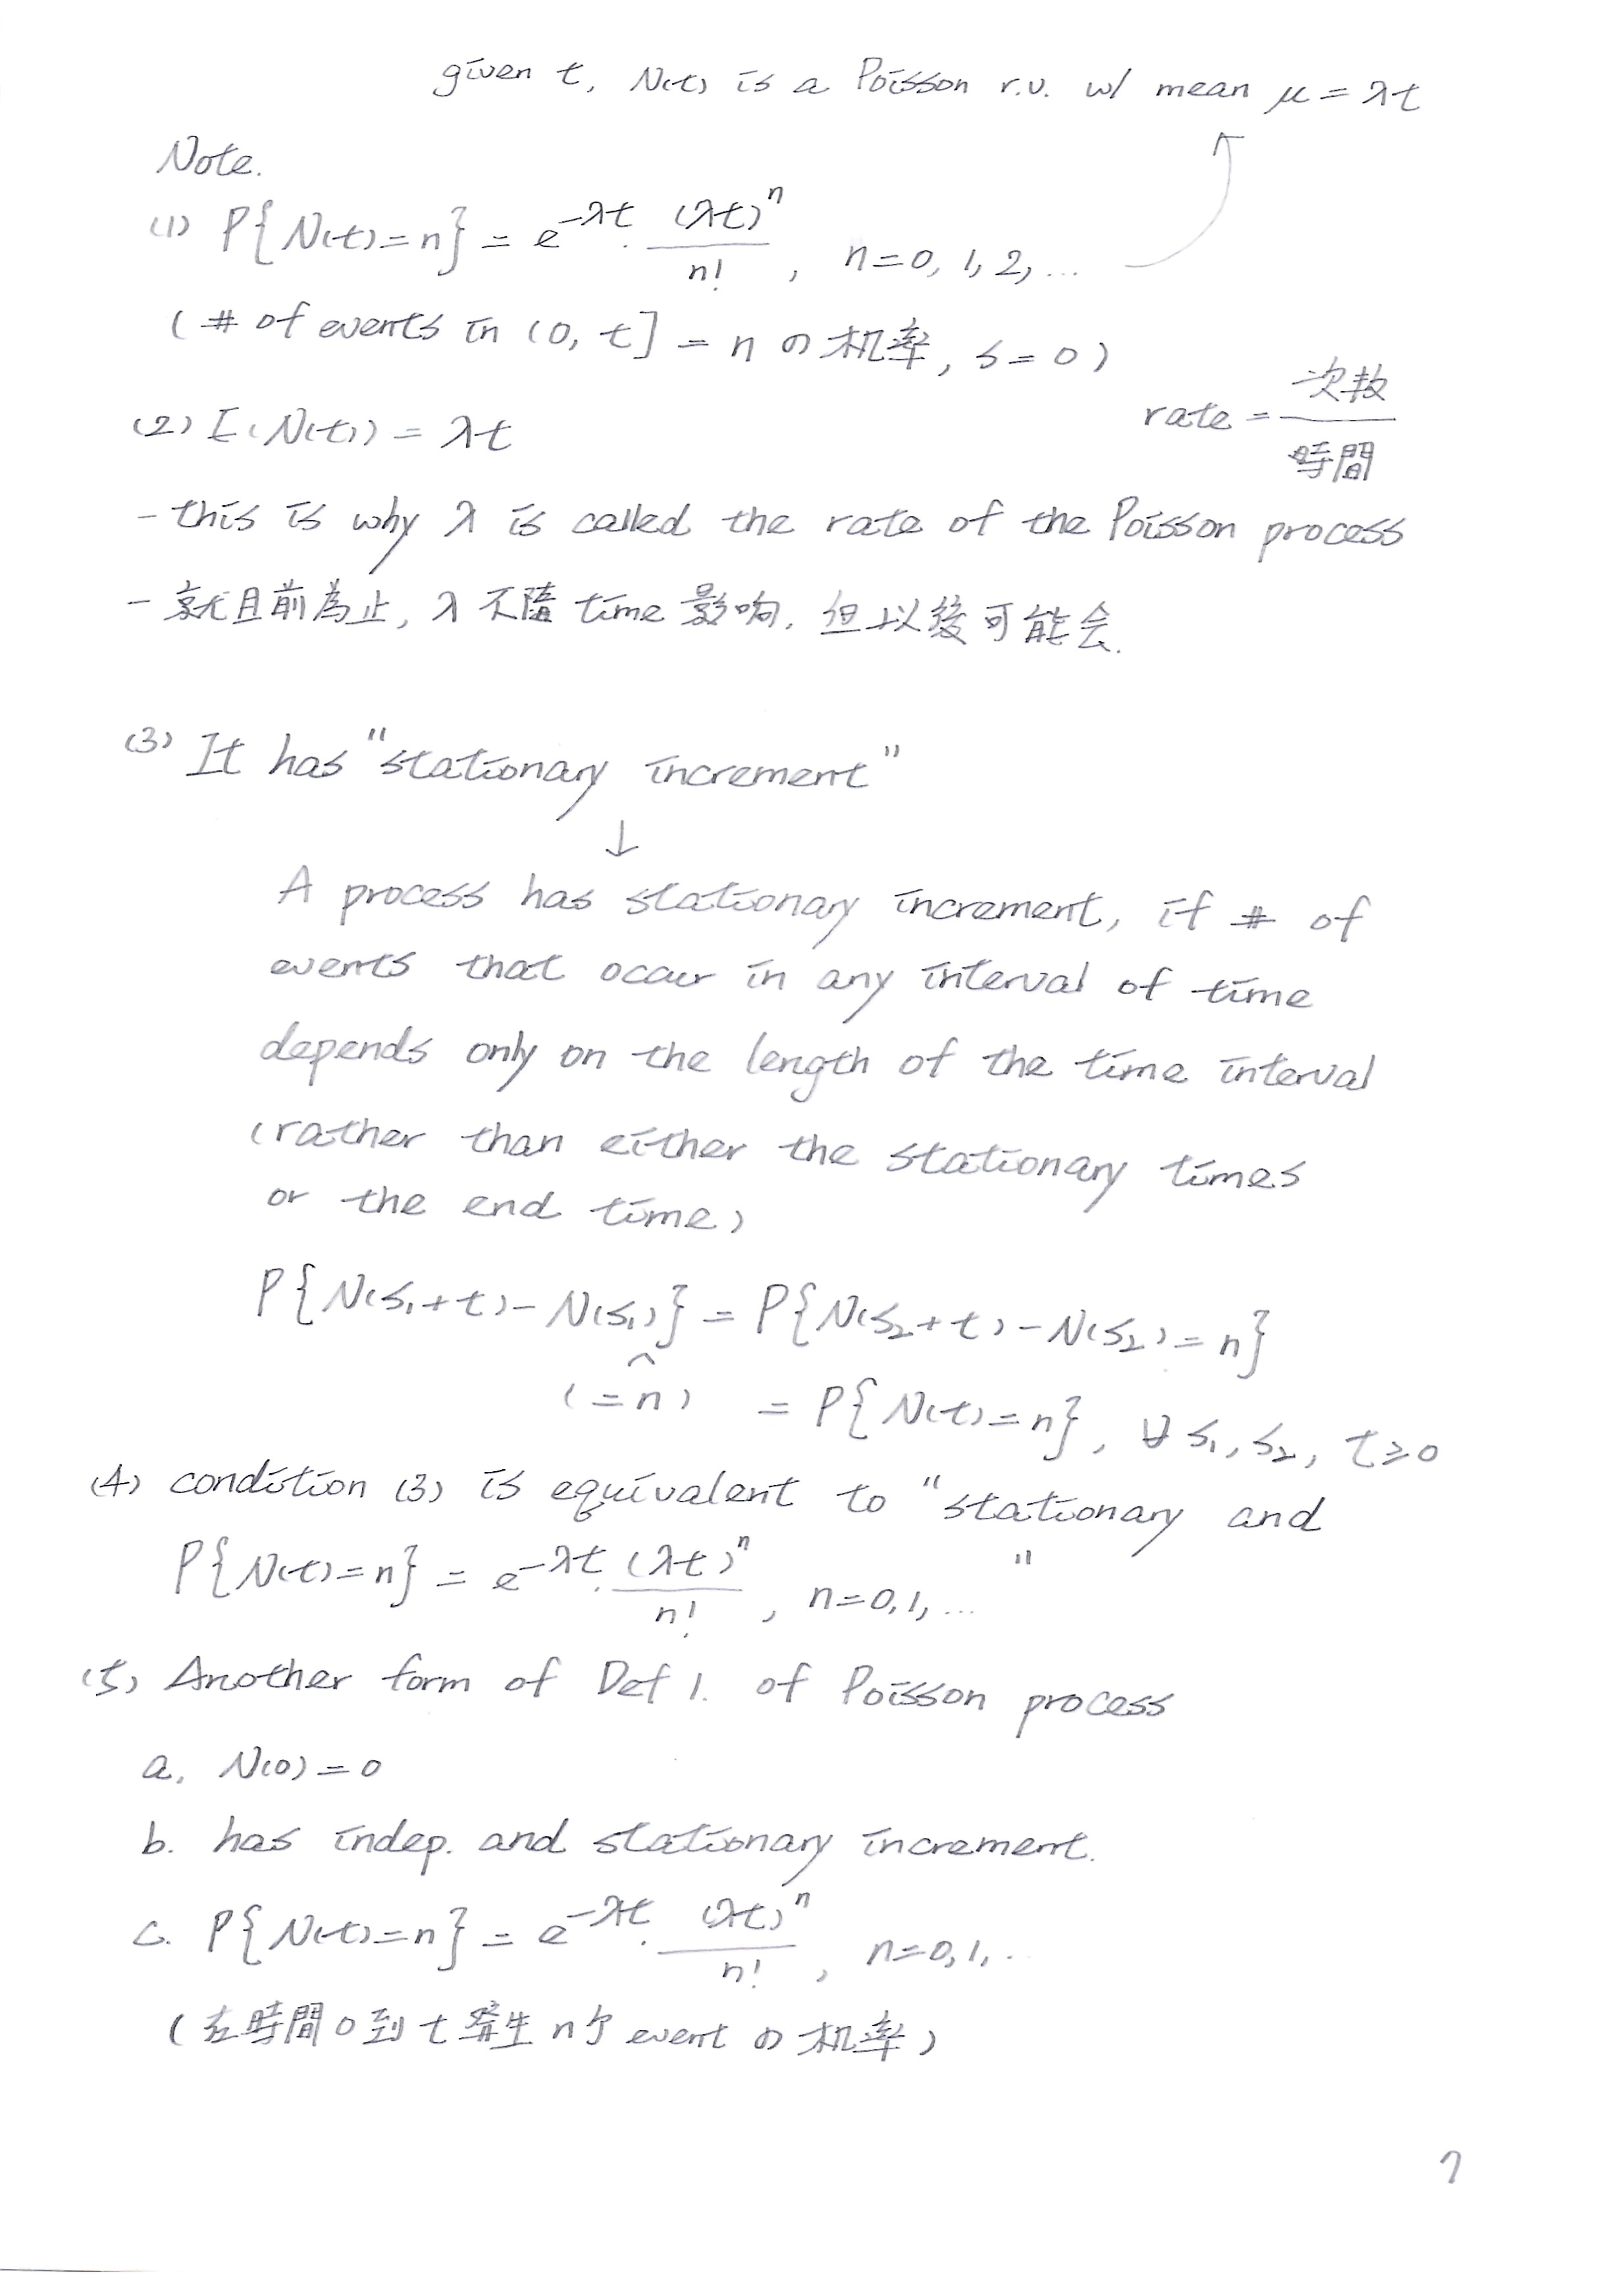 given t, N(t) is a Poisson r.v. w/ mean μ = λt
Note.
(1) P{N(t)=n} = e^{-λt} · (λt)^n / n! , n=0, 1, 2, ...
(# of events in (0, t] = n の机率, s=0)
rate = 次数 / 時間
(2) E(N(t)) = λt
- this is why λ is called the rate of the Poisson process
- 就目前為止, λ 不隨 time 影响, 但以後可能会.
(3) It has "stationary increment"
↓
A process has stationary increment, if # of
events that occur in any interval of time
depends only on the length of the time interval
(rather than either the stationary times
or the end time)
P{N(s₁+t)-N(s₁)} = P{N(s₂+t)-N(s₂)=n}
^
(=n) = P{N(t)=n}, ∀ s₁, s₂, t≥0
(4) condition (3) is equivalent to "stationary and
P{N(t)=n} = e^{-λt} · (λt)^n / n! , n=0,1,... "
(5) Another form of Def 1. of Poisson process
a. N(0)=0
b. has indep. and stationary increment.
c. P{N(t)=n} = e^{-λt} · (λt)^n / n! , n=0,1,..
(在時間0到t發生n个event の机率)
7